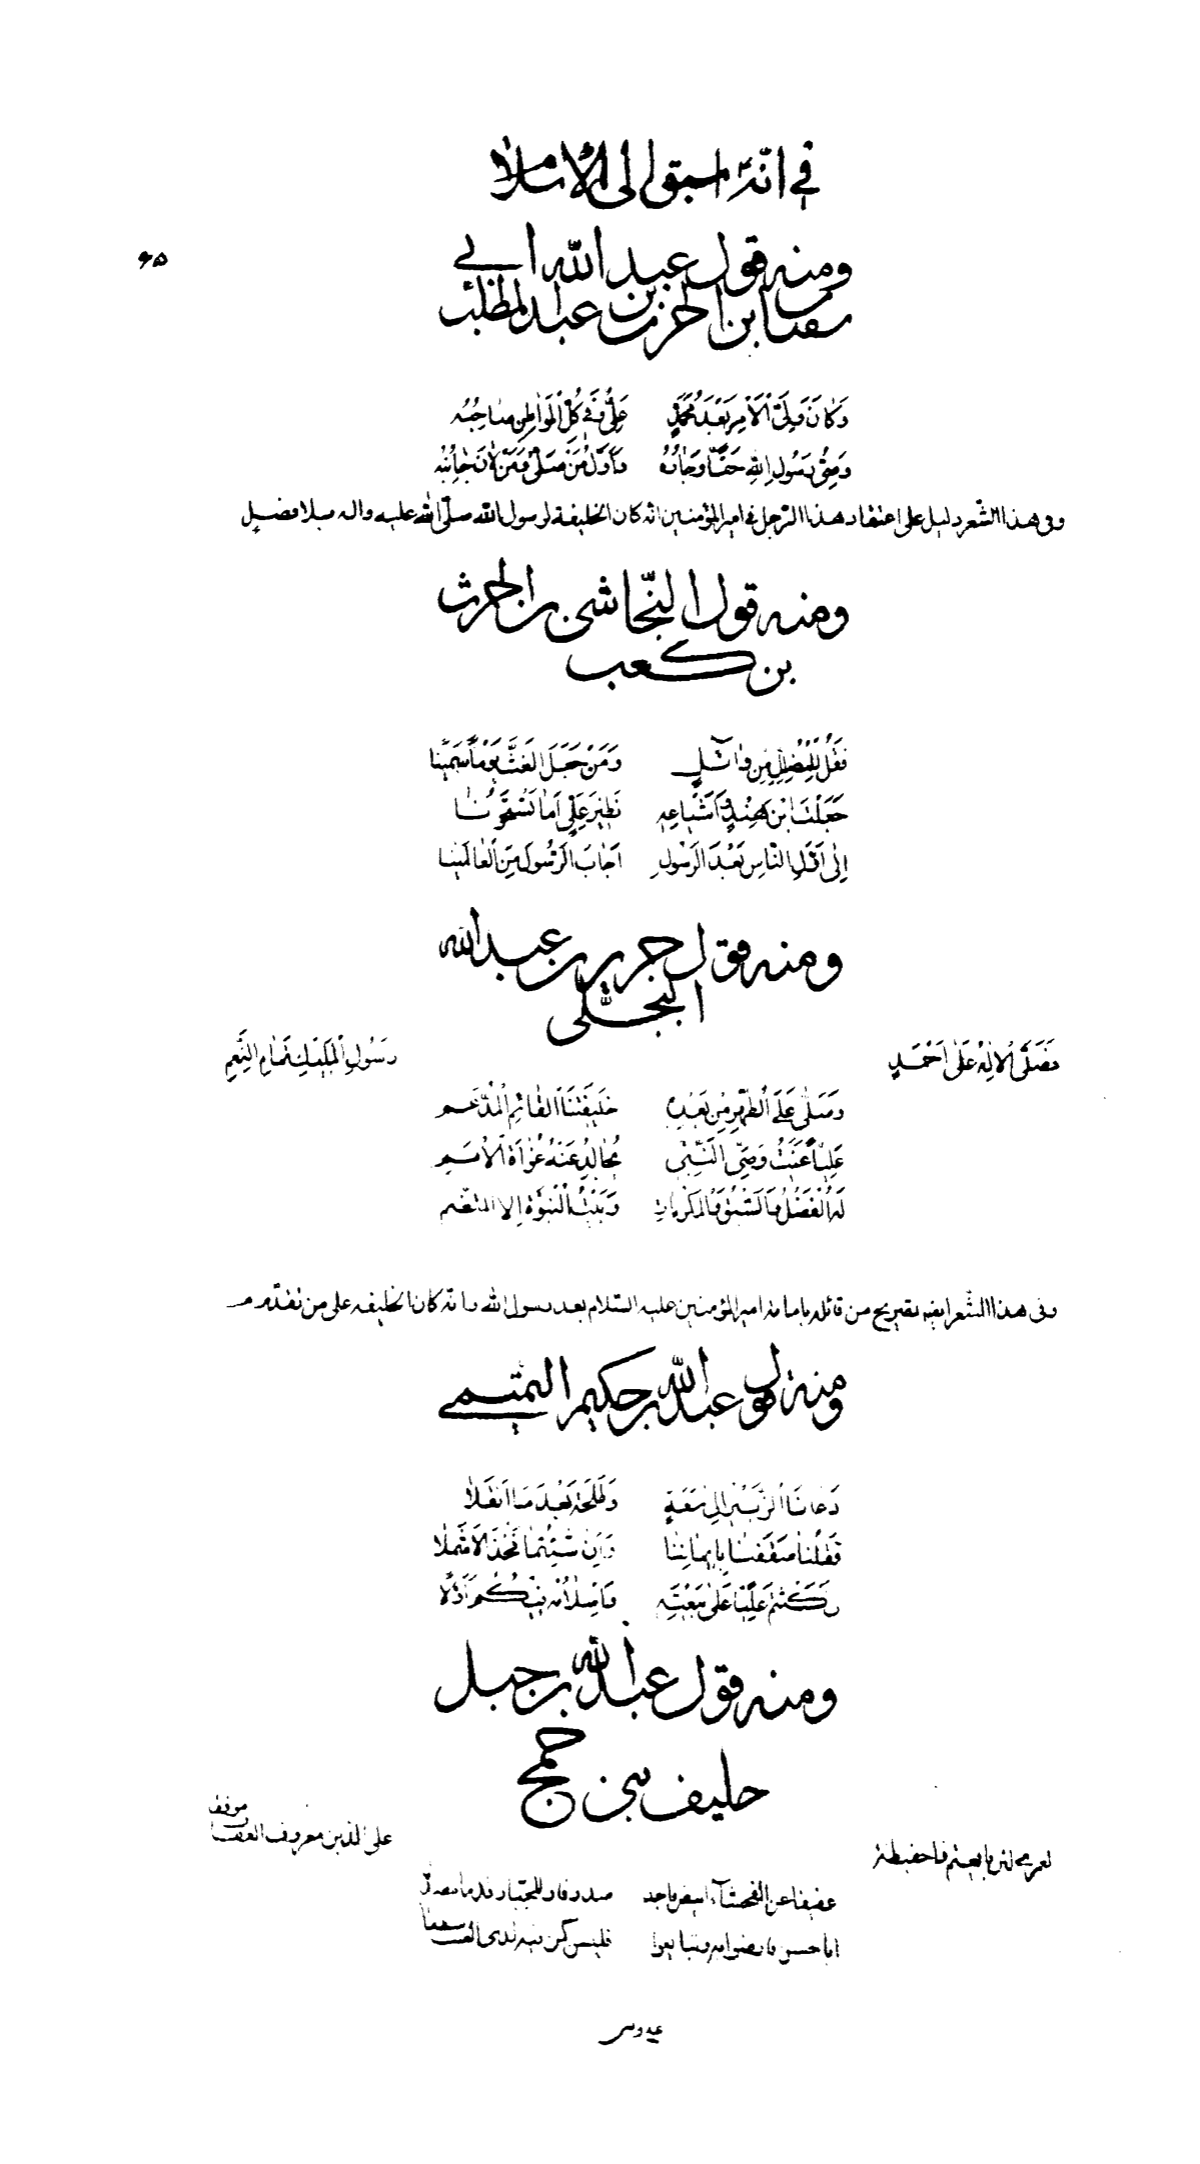 في انّه اسبق الى الاسلام
۶۵
ومنه قول عبد الله ابي
سفيان بن الحرث بن عبد المطلب
وَكانَ وَلِيَّ الاَمرِ بَعْدَ مُحَمَّدٍ عَلِيٌّ وَفي كُلِّ المَواطِنِ صاحِبُه
وَصِيُّ رَسُولِ اللهِ حَقّاً وَجارُهُ وَاَوَّلُ مَن صَلّى وَمَنْ لانَ جانِبُه
وفى هذا الشّعر دليل على اعتقاد هذا الرّجل في امير المؤمنين انّه كان الخليفة لرسول الله صلّى الله عليه واله بلا فصل
ومنه قول النّجاشى بن الحرث
بن كعب
فَقُلْ لِلْمُضَلِّلِ مِن وائِلٍ وَمَنْ جَعَلَ الغَثَّ يَوْماً سَمينا
جَعَلْتَ ابْنَ هِنْدٍ وَاَشْياعِهِ نَظيرَ عَلِيٍّ اَما تَسْتَحُونا
اِلى اَوَّلِ النّاسِ بَعْدَ الرَسُولِ اَجابَ الرَسُولَ مِنَ العالَمينا
ومنه قول جرير بن عبد الله
البجلّى
فَصَلَّى الاِلهُ عَلى اَحْمَدٍ رَسُولِ المَليكِ تَمامِ النِّعَمِ
وَصَلّى عَلَى الطُهْرِ مِنْ بَعْدِهِ خَليفَتَنَا القائِمِ المُدَّعَم
عَلِيّاً عَنَيْتُ وَصِيَّ النَّبِيّ يُجالِدُ عَنْهُ غُواةَ الاُمَمِ
لَهُ الفَضْلُ وَالسَّبْقُ وَالمَكْرُماتِ وَبَيْتُ النُبُوَّةِ لا
وفى هذا الشّعر ايضا تصريح من قائله بامامة امير المؤمنين عليه السّلام بعد رسول الله وانّه كان الخليفه على من تقدّم
ومنه قول عبد الله بن حكيم التميمي
دَعانَا الزُبَيْرُ اِلى بَيْعَةٍ وَطَلْحَةُ بَعْدَ مَا اَثْقَلا
فَقُلْنا صَفَقْنا بِاَيْمانِنا وَاِنْ شِئْتُما فَخُذَا الاَشْمَلا
نَكَثْتُمْ عَلِيّاً عَلى بَيْعَتِه وَاِسْلامُهُ فيكُم اَوَّلا
ومنه قول عبد الله بن جبل
حليف بنى جمح
لعمرى لئن بايعتم ذا حفيظة على الدّين معروف العفاف موفقا
عفيفا عن الفحشآء ابيض ماجد صدوقا وللجبّار قدما مصدّقا
ابا حسن فارضوا به وتبايعوا فليس كمن فيه لذى العيب